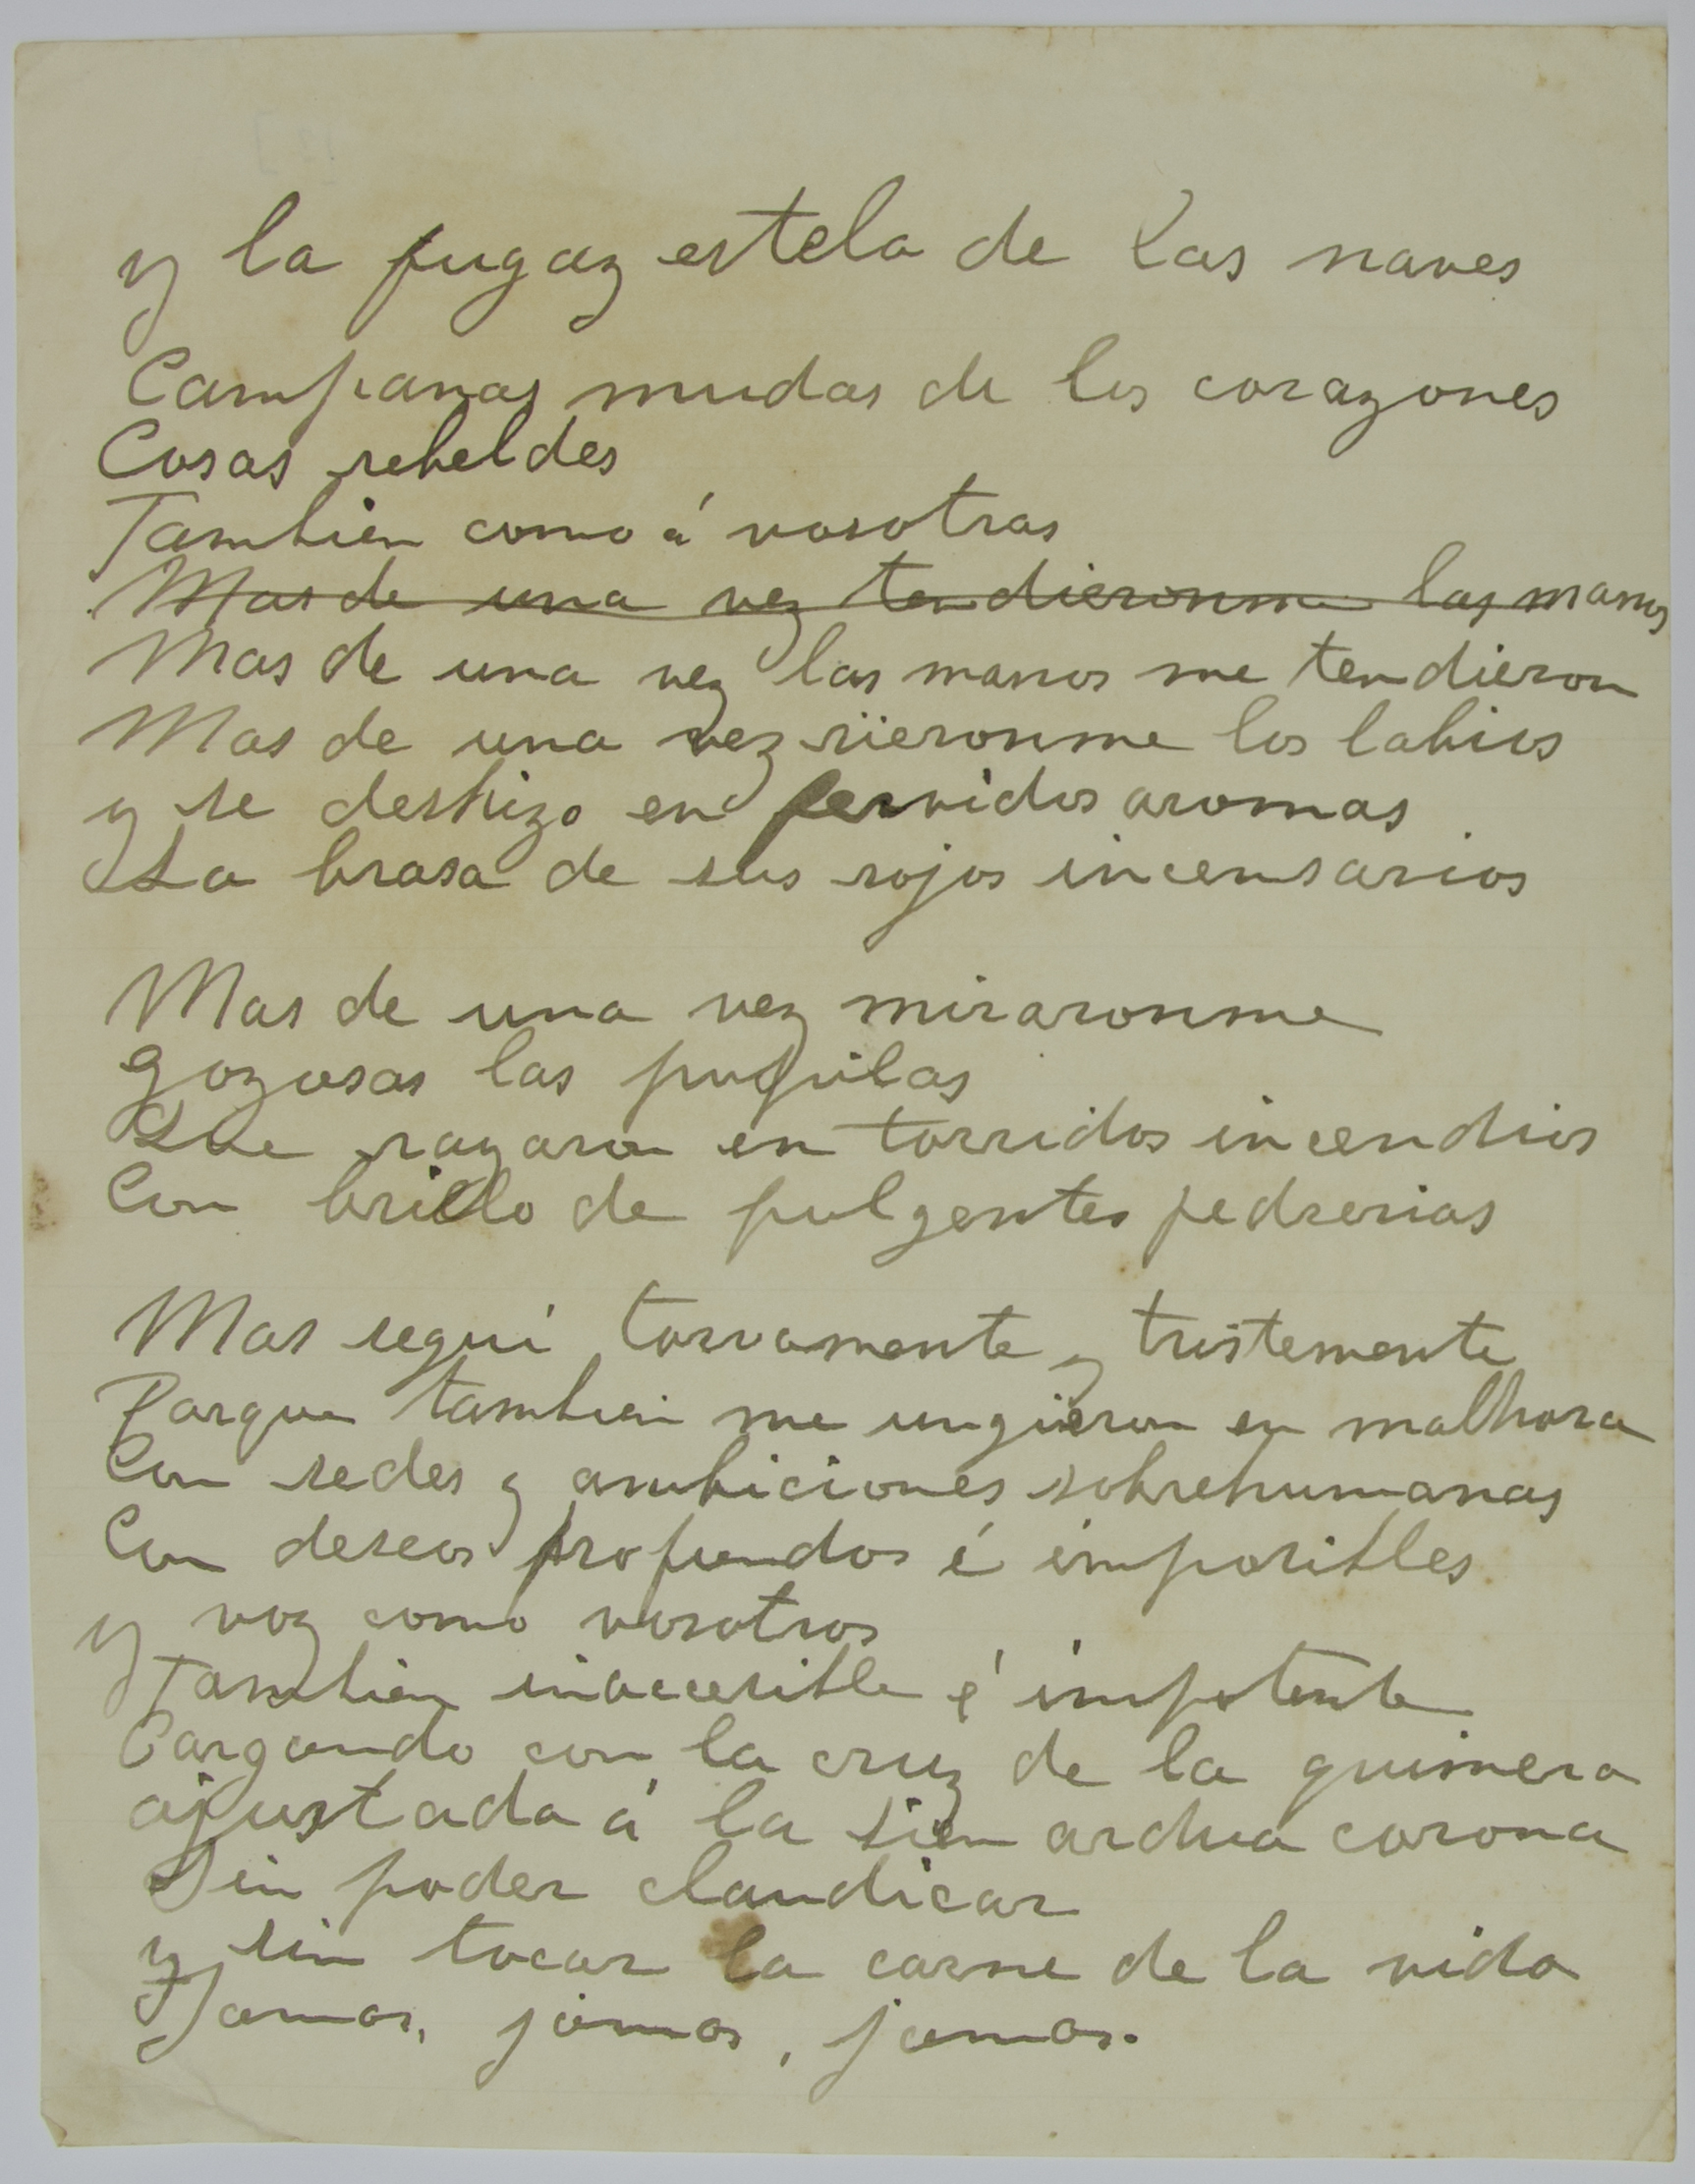 y la fugaz estela de las naves
Campanas mudas de los corazones
Cosas rebeldes
Tambien como á vosotras
Mas de una vez tendieronme las manos
Mas de una vez las manos me tendieron
Mas de una vez riieronme los labios
y se deshizo en fervidos aromas
La brasa de sus rojos incensarios
Mas de una vez miraronme
gozosas las pupilas
Que rayaron en torridos incendios
Con brillo de fulgentes pedrerias
Mas segui torvamente y tristemente
Porque tambien me ungieron en malhora
Con sedes y ambiciones sobrehumanas
Con deseos profundos é imposibles
y voy como vosotros
Tambien inaccesible é impotente
Cargando con la cruz de la quimera
ajustada á la sien ardua corona
Sin poder claudicar
y sin tocar la carne de la vida
Jamas, jamas, jamas.